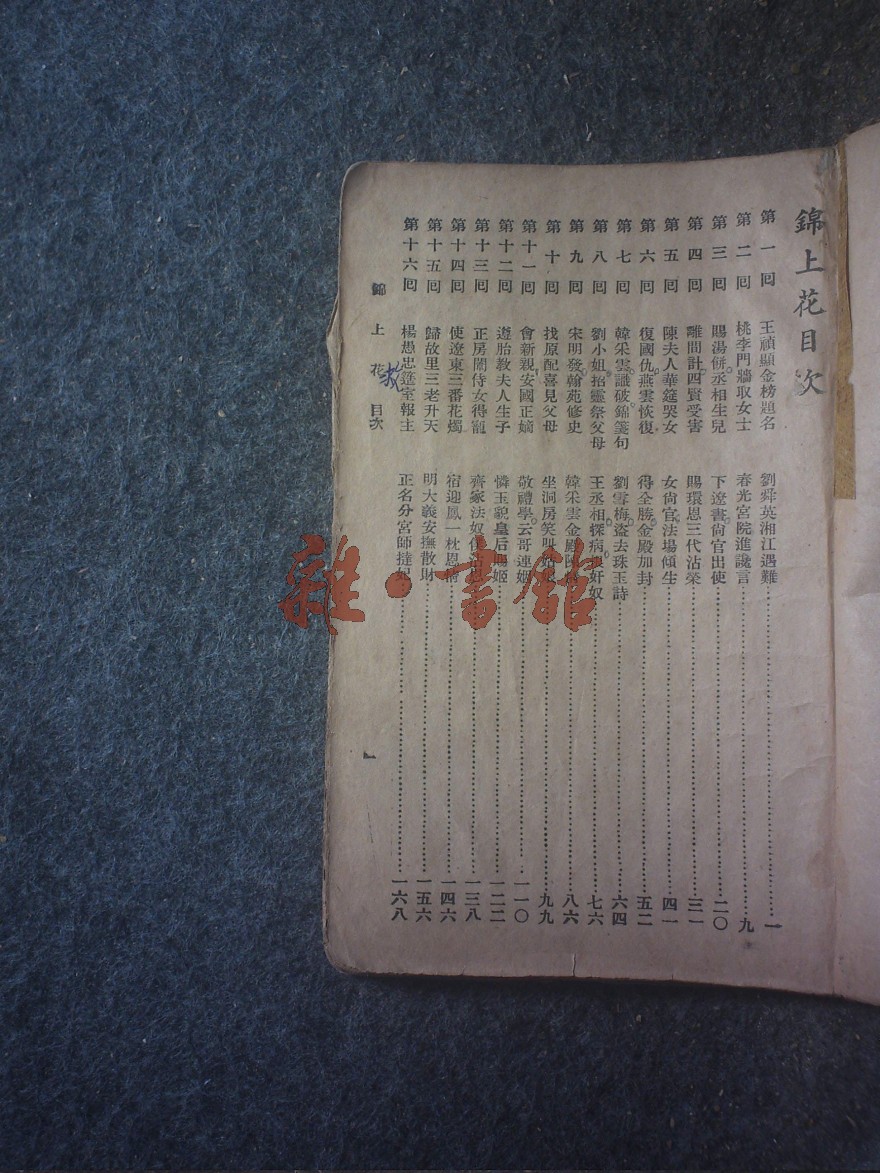 錦上花目次
第一囘 王禎顯金榜題名 劉舜英湘江遇難 一
第二囘 桃李門牆取女士 春光宮院進讒言 九
第三囘 賜湯餅丞相生兒 下遼書尙官出使 二〇
第四囘 離間計四賢受害 賜環恩三代沾榮 三一
第五囘 陳夫人華筵哭女 女尙官法場傾生 四一
第六囘 復國仇燕雲恢復 得全勝金殿加封 五二
第七囘 韓采雲讖破錦箋句 劉雪梅盜去珠玉詩 六四
第八囘 劉小姐招靈祭父母 王丞相探病 奸奴 七六
第九囘 宋明發翰苑修史 韓采雲金殿 八六
第十囘 找原配喜見父母 坐洞房笑 九九
第十一囘 會新親安國正嫡 敬禮學云哥連姻 一一〇
第十二囘 遵胎敎夫人生子 憐玉貌皇后賜姬 一二二
第十三囘 正房闈侍女得寵 齊家法奴 一三八
第十四囘 使遼東三番花燭 宿迎鳳一枕恩情 一四六
第十五囘 歸故里三老升天 明大義安撫散財 一五六
第十六囘 楊愚忠筵室報主 正名分宮師撻妃 一六八
錦上花 目次
一
雜·書舘